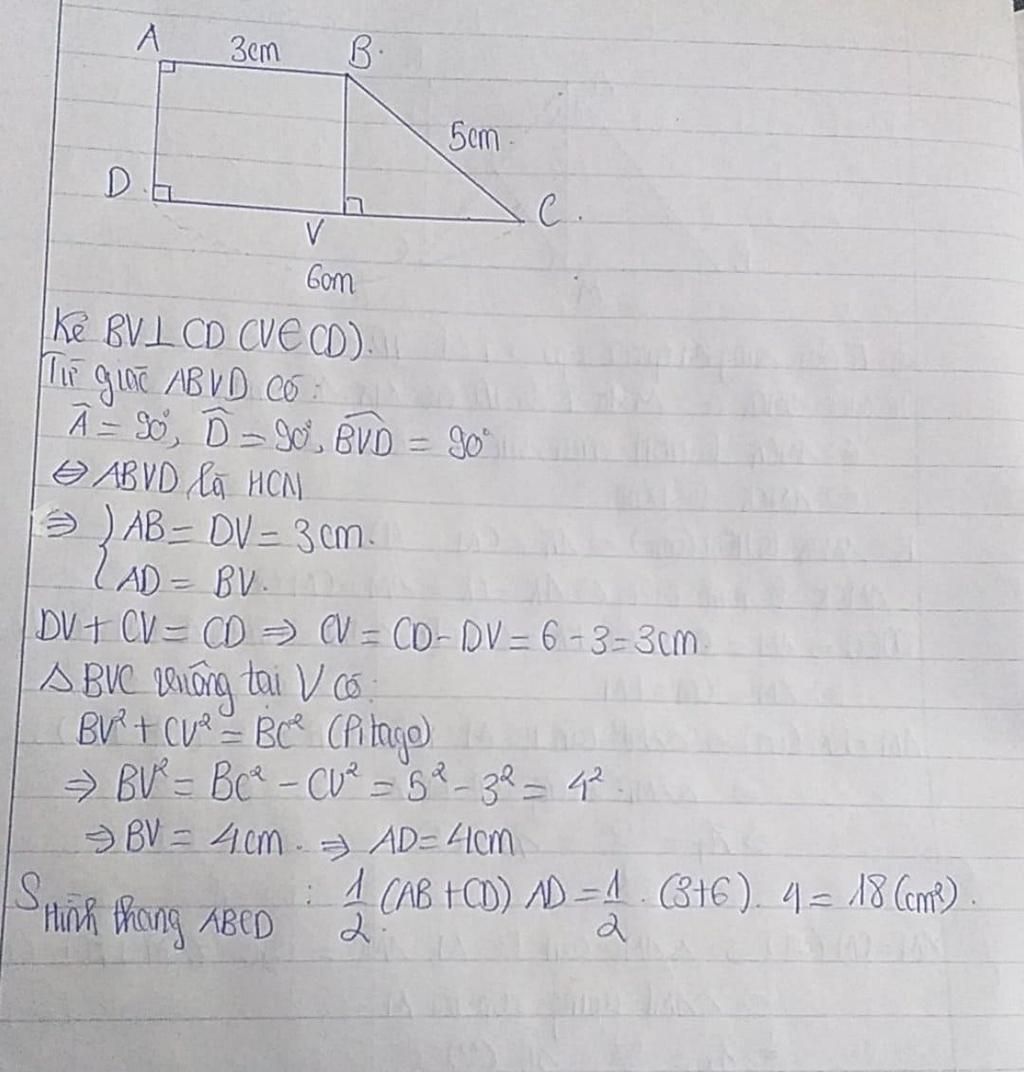 A 3cm B.
5cm
D C.
V
6cm
Kẻ BV⊥CD (V∈CD).
Tứ giác ABVD có:
Â = 90°, D̂ = 90°, BVD̂ = 90°
⇔ ABVD là HCN
⇒ { AB = DV = 3cm.
AD = BV.
DV + CV = CD ⇒ CV = CD - DV = 6 - 3 = 3cm
△BVC vuông tại V có:
BV² + CV² = BC² (Pitago)
⇒ BV² = BC² - CV² = 5² - 3² = 4²
⇒ BV = 4cm. ⇒ AD = 4cm
S Hình thang ABCD : 1/2 (AB + CD) AD = 1/2 . (3+6). 4 = 18 (cm²).